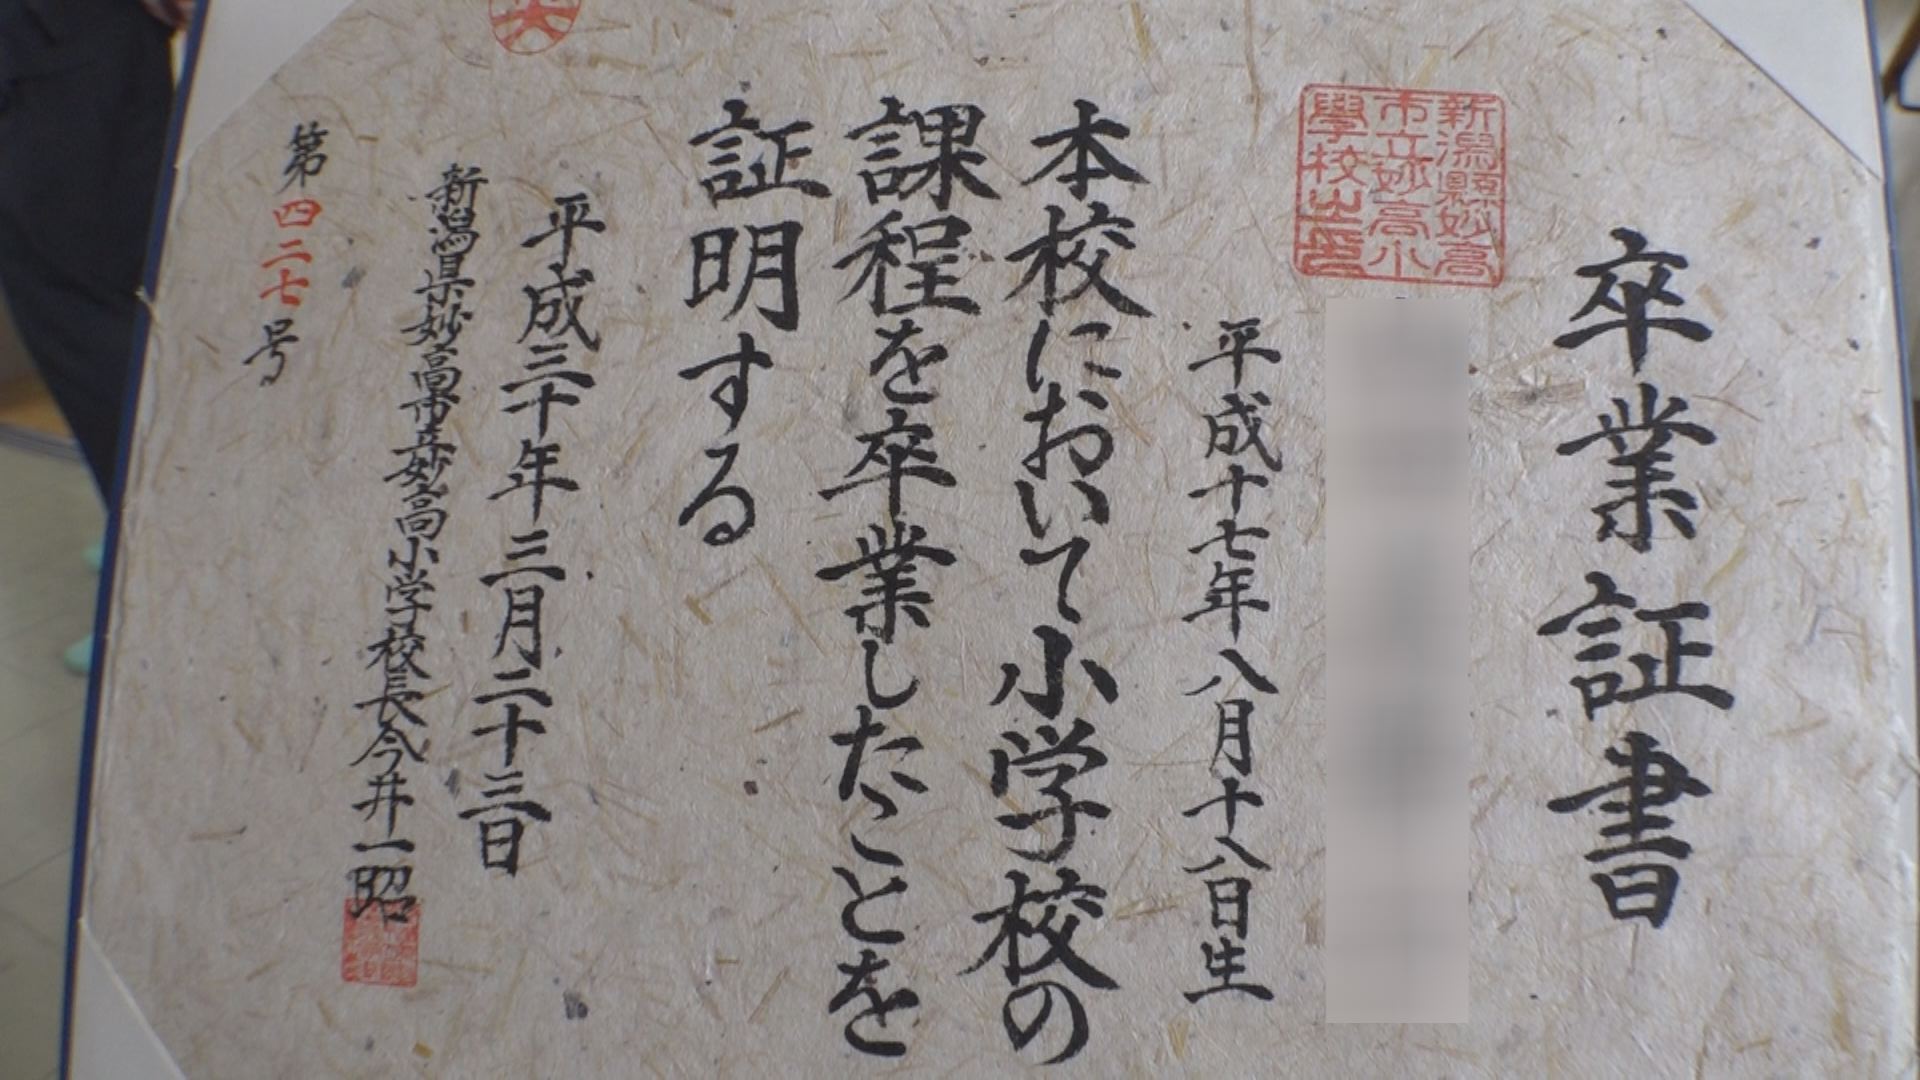 卒業証書
新潟縣妙高
市立妙高小
學校之印
平成十七年八月十八日生
本校において小学校の
課程を卒業したことを
証明する
平成三十年三月二十三日
新潟県妙高市立妙高小学校長今井一昭
第四二七号